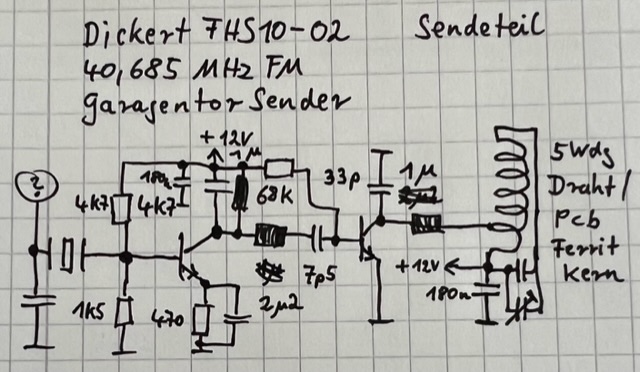 Dickert FHS10-02 Sendeteil
40,685 MHz FM
Garagentor Sender
+12V
180n
1µ
4k7
4k7
68K
33p
1µ
5 Wdg
Draht/
Pcb
Ferrit
Kern
?
+12V
180n
1k5
470
2µ2
7p5